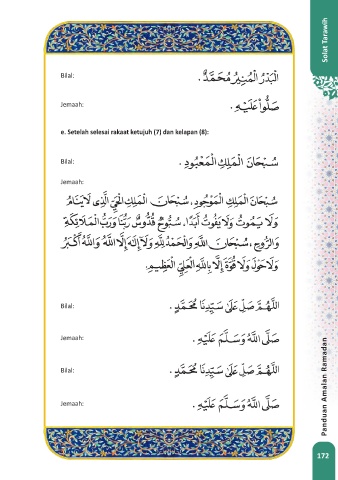 Solat Tarawih
Bilal:
اَلْبَدْرُ الْمُنِيْرُ مُحَمَّدٌ .
Jemaah:
صَلُّوْا عَلَيْهِ .
e. Setelah selesai rakaat ketujuh (7) dan kelapan (8):
Bilal:
سُبْحَانَ الْمَلِكِ الْمَعْبُوْدِ .
Jemaah:
سُبْحَانَ الْمَلِكِ الْمَوْجُوْدِ، سُبْحَانَ الْمَلِكِ الْحَيِّ الَّذِي لَا يَنَامُ
وَلَا يَمُوْتُ وَلَا يَفُوْتُ أَبَدًا. سُبُّوْحٌ قُدُّوْسٌ رَبُّنَا وَرَبُّ الْمَلَائِكَةِ
وَالرُّوْحِ، سُبْحَانَ اللهِ وَالْحَمْدُ لِلّٰهِ وَلَا إِلٰهَ إِلَّا اللهُ وَاللهُ أَكْبَرُ
وَلَا حَوْلَ وَلَا قُوَّةَ إِلَّا بِاللهِ الْعَلِيِّ الْعَظِيْمِ.
Bilal:
اَللّٰهُمَّ صَلِّ عَلَىٰ سَيِّدِنَا مُحَمَّدٍ .
Jemaah:
صَلَّى اللهُ وَسَلَّمَ عَلَيْهِ .
Bilal:
اَللّٰهُمَّ صَلِّ عَلَىٰ سَيِّدِنَا مُحَمَّدٍ .
Jemaah:
صَلَّى اللهُ وَسَلَّمَ عَلَيْهِ .
Panduan Amalan Ramadan
172